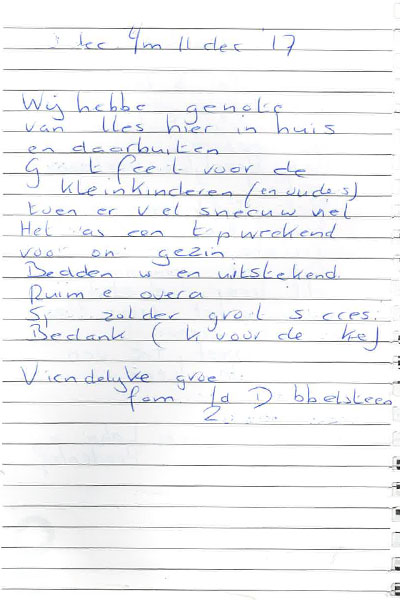 dec t/m 11 dec 17
Wij hebbe genote
van lles hier in huis
en daarbuiten
G t feet voor de
kleinkinderen (en ouders)
toen er v el sneeuw viel
Het as een t p weekend
voor on gezin
Bedden w en uitstekend
Ruim e overa
zolder groot s cces
Bedank ( k voor de ke)
Viendelyke groe
fam D bbelsteen